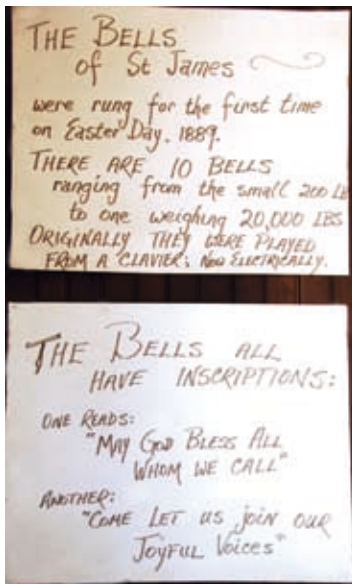 THE BELLS
of St James
were rung for the first time
on Easter Day. 1889.
THERE ARE 10 BELLS
ranging from the small 200 LB
to one weighing 20,000 LBS
ORIGINALLY THEY WERE PLAYED
FROM A CLAVIER; NOW ELECTRICALLY.
THE BELLS ALL
HAVE INSCRIPTIONS:
ONE READS:
"MAY GOD BLESS ALL
WHOM WE CALL"
ANOTHER:
"COME LET US JOIN OUR
JOYFUL VOICES"